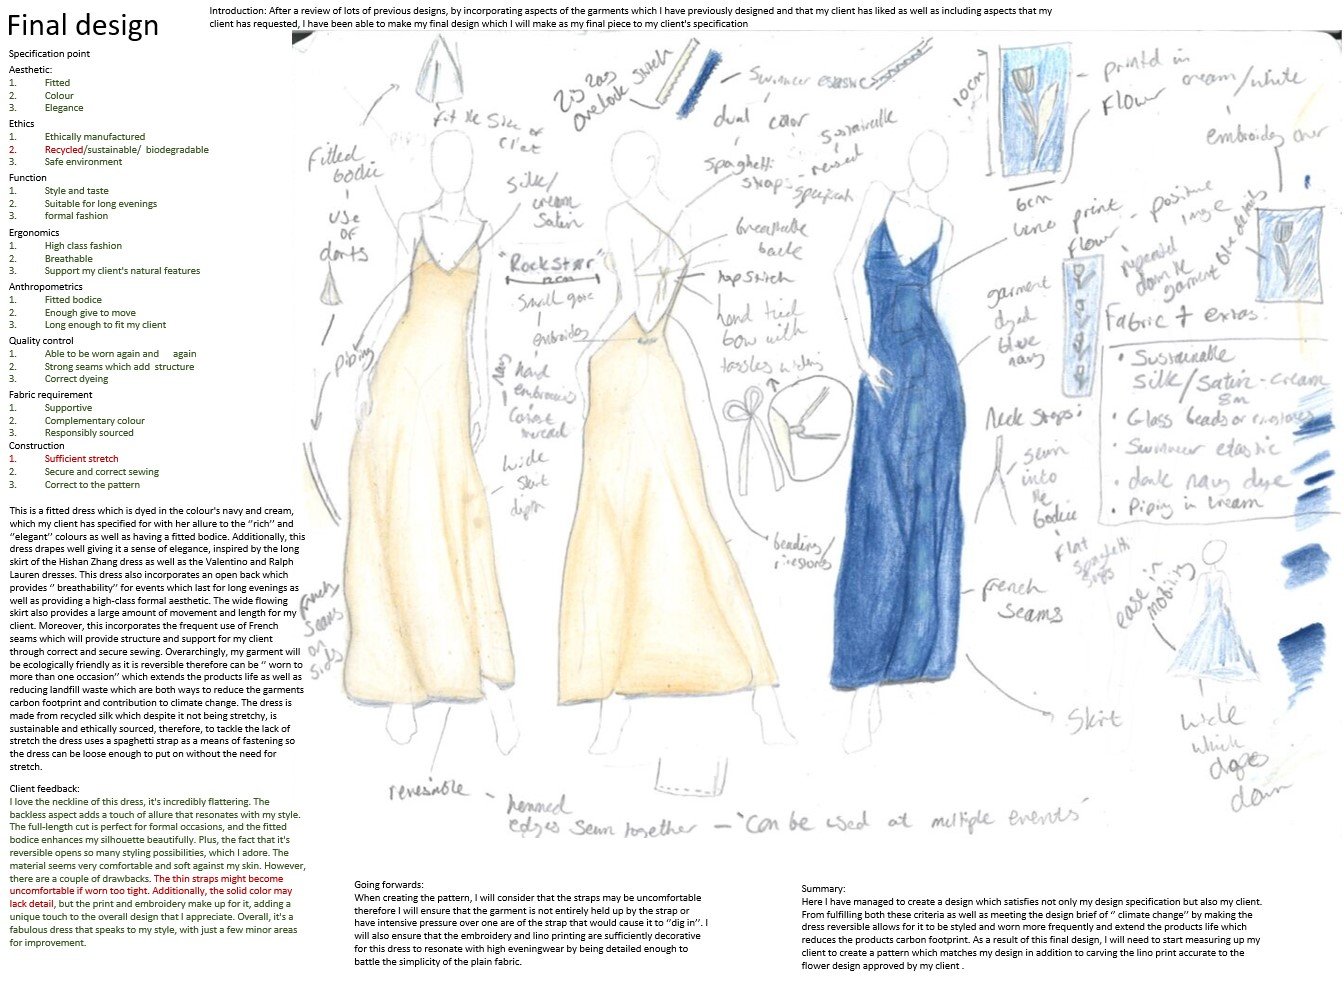 Final design
Introduction: After a review of lots of previous designs, by incorporating aspects of the garments which I have previously designed and that my client has liked as well as including aspects that my
client has requested, I have been able to make my final design which I will make as my final piece to my client's specification
Specification point
Aesthetic:
1. Fitted
2. Colour
3. Elegance
Ethics
1. Ethically manufactured
2. Recycled/sustainable/ biodegradable
3. Safe environment
Function
1. Style and taste
2. Suitable for long evenings
3. formal fashion
Ergonomics
1. High class fashion
2. Breathable
3. Support my client's natural features
Anthropometrics
1. Fitted bodice
2. Enough give to move
3. Long enough to fit my client
Quality control
1. Able to be worn again and again
2. Strong seams which add structure
3. Correct dyeing
Fabric requirement
1. Supportive
2. Complementary colour
3. Responsibly sourced
Construction
1. Sufficient stretch
2. Secure and correct sewing
3. Correct to the pattern
This is a fitted dress which is dyed in the colour's navy and cream,
which my client has specified for with her allure to the "rich" and
"elegant" colours as well as having a fitted bodice. Additionally, this
dress drapes well giving it a sense of elegance, inspired by the long
skirt of the Hishan Zhang dress as well as the Valentino and Ralph
Lauren dresses. This dress also incorporates an open back which
provides " breathability" for events which last for long evenings as
well as providing a high-class formal aesthetic. The wide flowing
skirt also provides a large amount of movement and length for my
client. Moreover, this incorporates the frequent use of French
seams which will provide structure and support for my client
through correct and secure sewing. Overarchingly, my garment will
be ecologically friendly as it is reversible therefore can be " worn to
more than one occasion" which extends the products life as well as
reducing landfill waste which are both ways to reduce the garments
carbon footprint and contribution to climate change. The dress is
made from recycled silk which despite it not being stretchy, is
sustainable and ethically sourced, therefore, to tackle the lack of
stretch the dress uses a spaghetti strap as a means of fastening so
the dress can be loose enough to put on without the need for
stretch.
Client feedback:
I love the neckline of this dress, it's incredibly flattering. The
backless aspect adds a touch of allure that resonates with my style.
The full-length cut is perfect for formal occasions, and the fitted
bodice enhances my silhouette beautifully. Plus, the fact that it's
reversible opens so many styling possibilities, which I adore. The
material seems very comfortable and soft against my skin. However,
there are a couple of drawbacks. The thin straps might become
uncomfortable if worn too tight. Additionally, the solid color may
lack detail, but the print and embroidery make up for it, adding a
unique touch to the overall design that I appreciate. Overall, it's a
fabulous dress that speaks to my style, with just a few minor areas
for improvement.
fit the size of
Fitted
bodice
use
of
darts
Piping
silk/
cream
Satin
"Rockstar"
embroidery
hand
wide
skirt
french
seams
on
sides
zig zag
overlock stitch
Swimwear elastic
dual color
spaghetti
straps
breathable
back
topstitch
hand tied
bow with
beading/
10cm
6cm
printed in
cream/white
Flower
embroidery over
lino print
Flower
positive
image
repeated
down the
garment
garment
dyed
blue
navy
Fabric + extras:
• Sustainable
silk/satin - cream
8m
• Glass beads or rinestones
• Swimwear elastic
• dark navy dye
• Piping in cream
Neck straps:
sewn
into
the
bodice
flat
spaghetti
french
seams
ease in
mobility
Skirt
wide
which
drapes
down
reversible - hemmed
edges sewn together - "Can be used at multiple events"
Going forwards:
When creating the pattern, I will consider that the straps may be uncomfortable
therefore I will ensure that the garment is not entirely held up by the strap or
have intensive pressure over one are of the strap that would cause it to "dig in". I
will also ensure that the embroidery and lino printing are sufficiently decorative
for this dress to resonate with high eveningwear by being detailed enough to
battle the simplicity of the plain fabric.
Summary:
Here I have managed to create a design which satisfies not only my design specification but also my client.
From fulfilling both these criteria as well as meeting the design brief of " climate change" by making the
dress reversible allows for it to be styled and worn more frequently and extend the products life which
reduces the products carbon footprint. As a result of this final design, I will need to start measuring up my
client to create a pattern which matches my design in addition to carving the lino print accurate to the
flower design approved by my client .